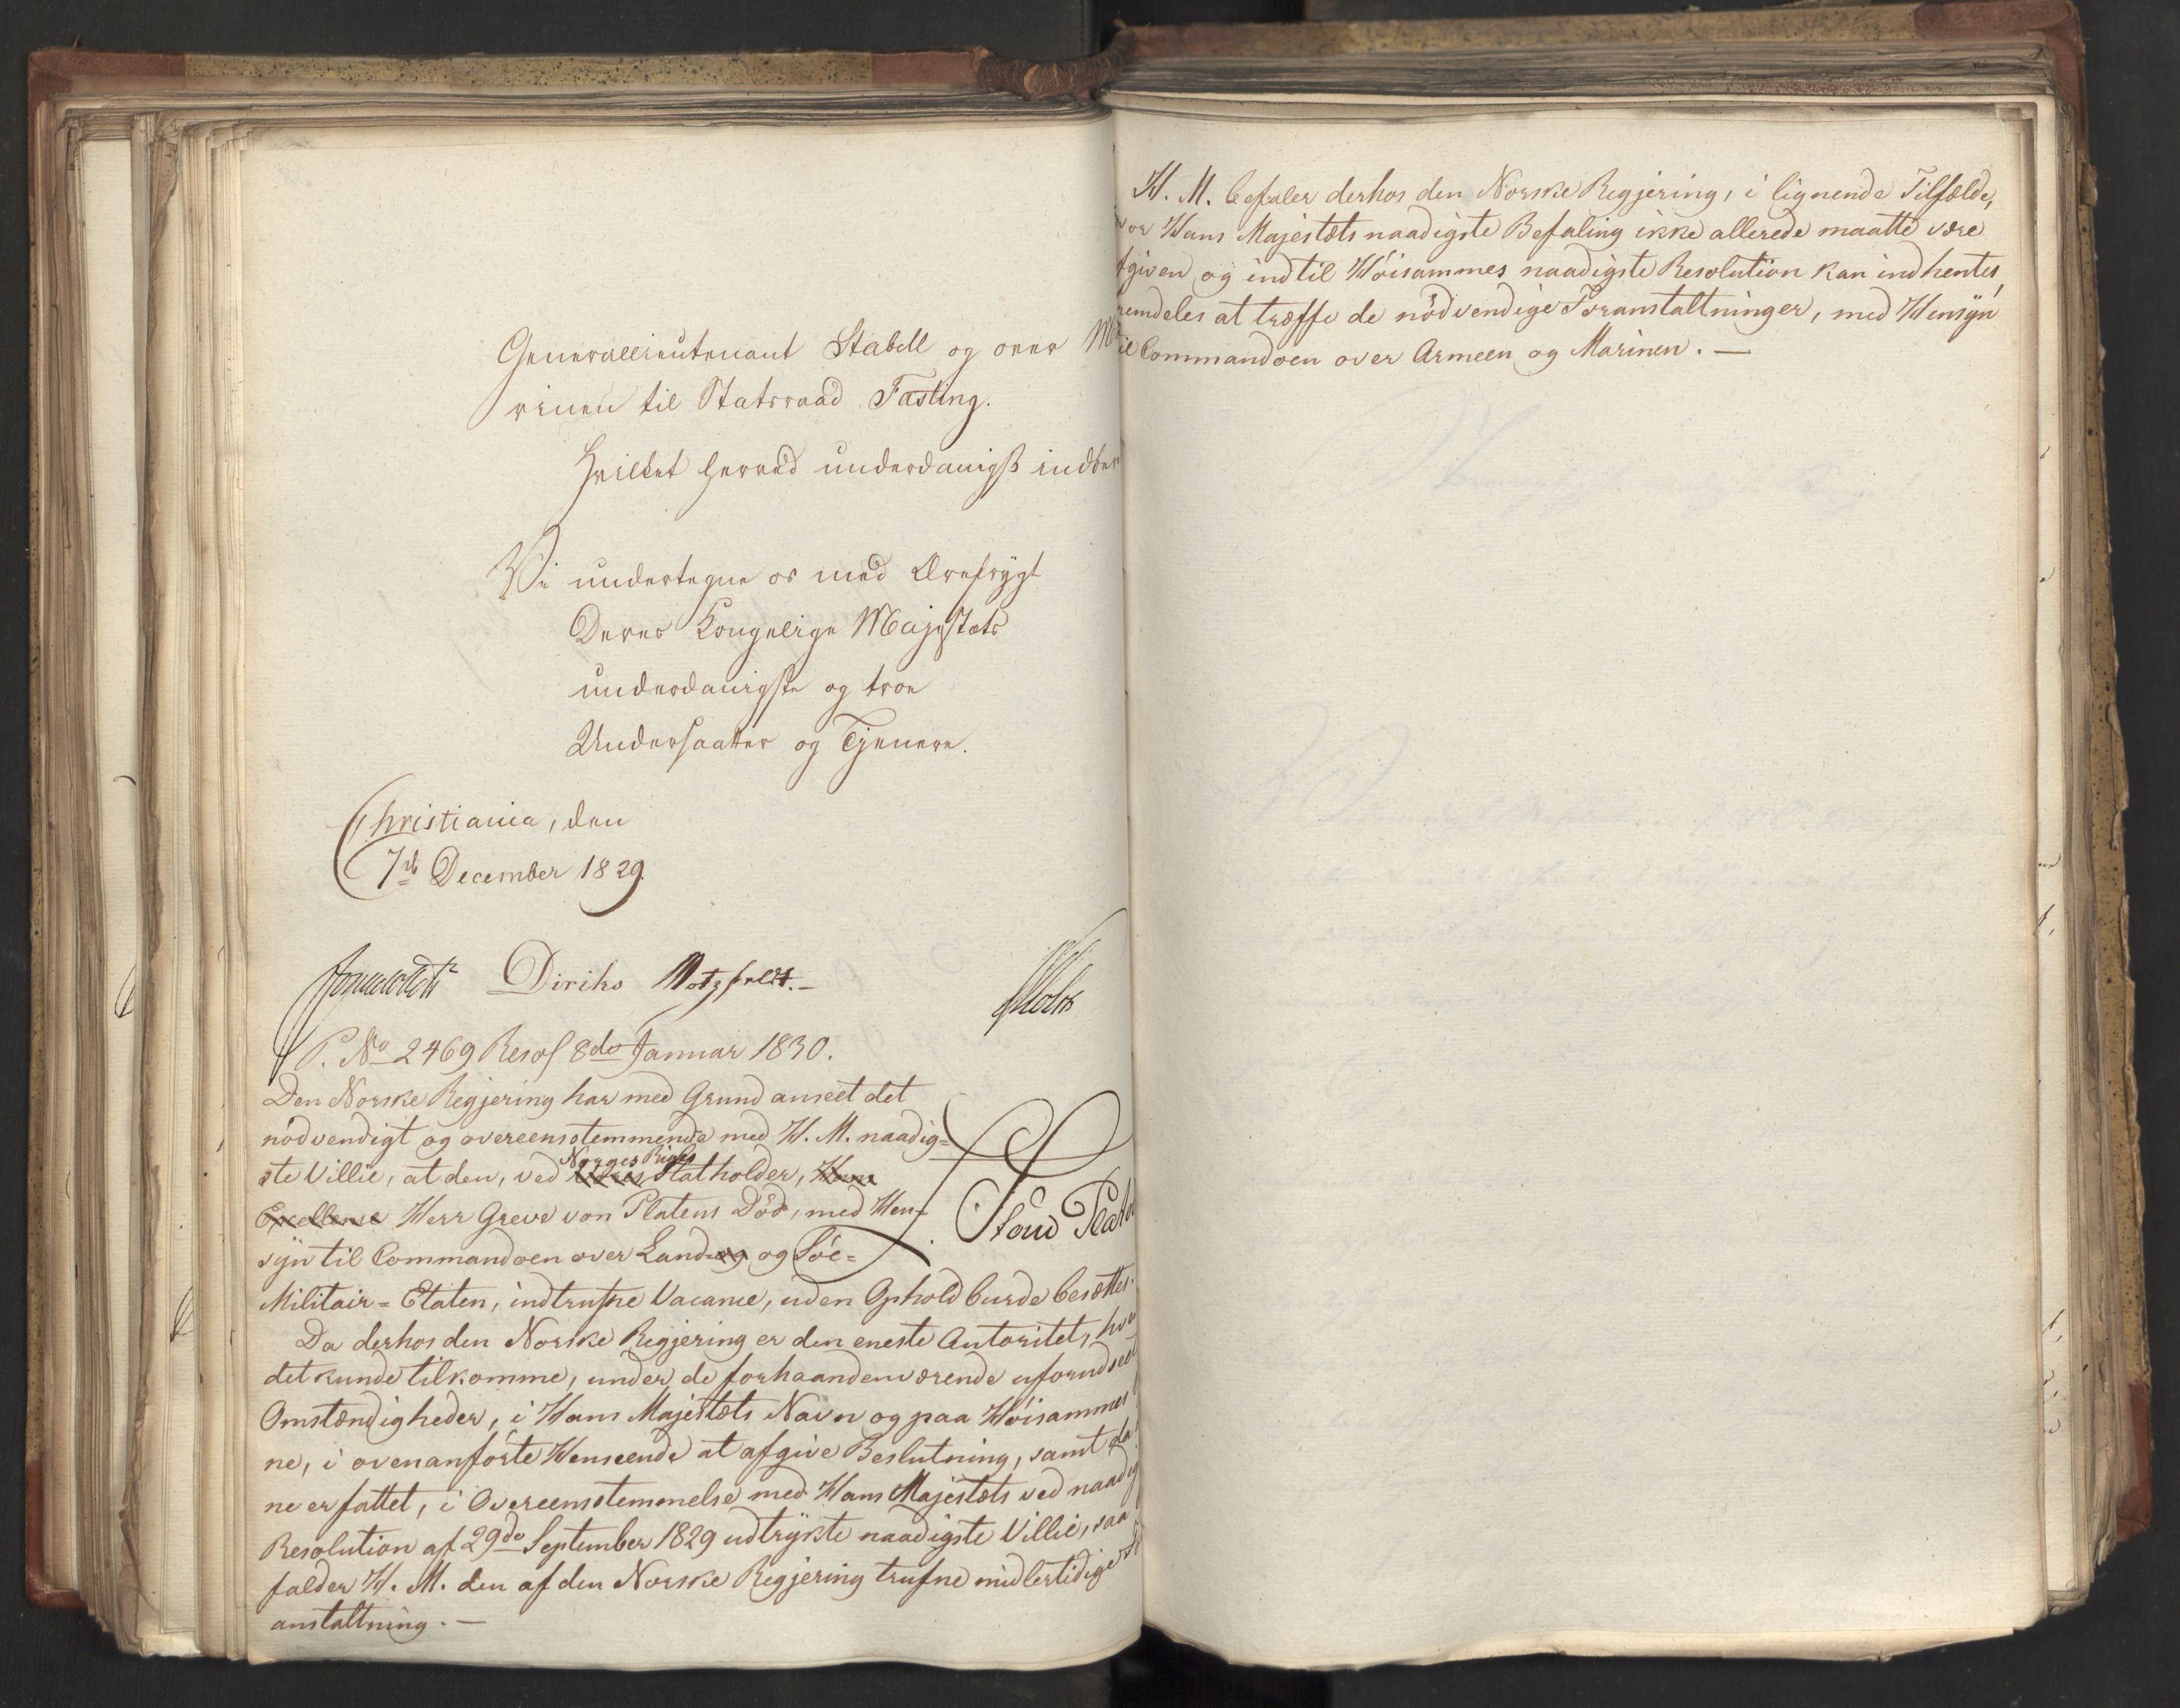 Generallieutenant Stabell og over Ma
rinen til Statsraad Fasting.
Hvilket herved underdanigst indber
Vi undertegne os med Ærefrygt
Deres Kongelige Majestæts
underdanigste og troe
Undersaatter og Tjenere.
Christiania, den
7de December 1829.
Diriks Motzfeldt. Holst
P. No 2469 Resol 8de Januar 1830.
Den Norske Regjering har med Grund anseet det
nödvendigt og overeensstemmende med H. M. naadig=
ste Villie, at den, ved Norges Riges Statholder, Hans
Excellence Herr Greve von Platens Död, med Hen=
syn til Commandoen over Land= og og Söe=
Militair=Etaten, indtrufne Vacance, uden Ophold burde besættes.
Da derhos den Norske Regjering er den eneste Autoritet, hvo
det kunde tilkomme, under de forhaandenværende uforudsee
Omstændigheder, i Hans Majestæts Navn og paa Höisammes
ne, i ovenanförte Henseende at afgive Beslutning, samt da
ne er fattet, i Overeensstemmelse med Hans Majestæts ved naadig
Resolution af 29de September 1829 udtrykte naadigste Villie, saa
falder H. M. den af den Norske Regjering trufne midlertidige
anstaltning. —
H. M. befaler derhos den Norske Regjering, i lignende Tilfælde,
vor Hans Majestæts naadigste Befaling ikke allerede maatte være
fgiven og indtil Höisammes naadigste Resolution kan indhentes,
remdeles at træffe de nödvendige Foranstaltninger, med Hensyn
il Commandoen over Armeen og Marinen. —